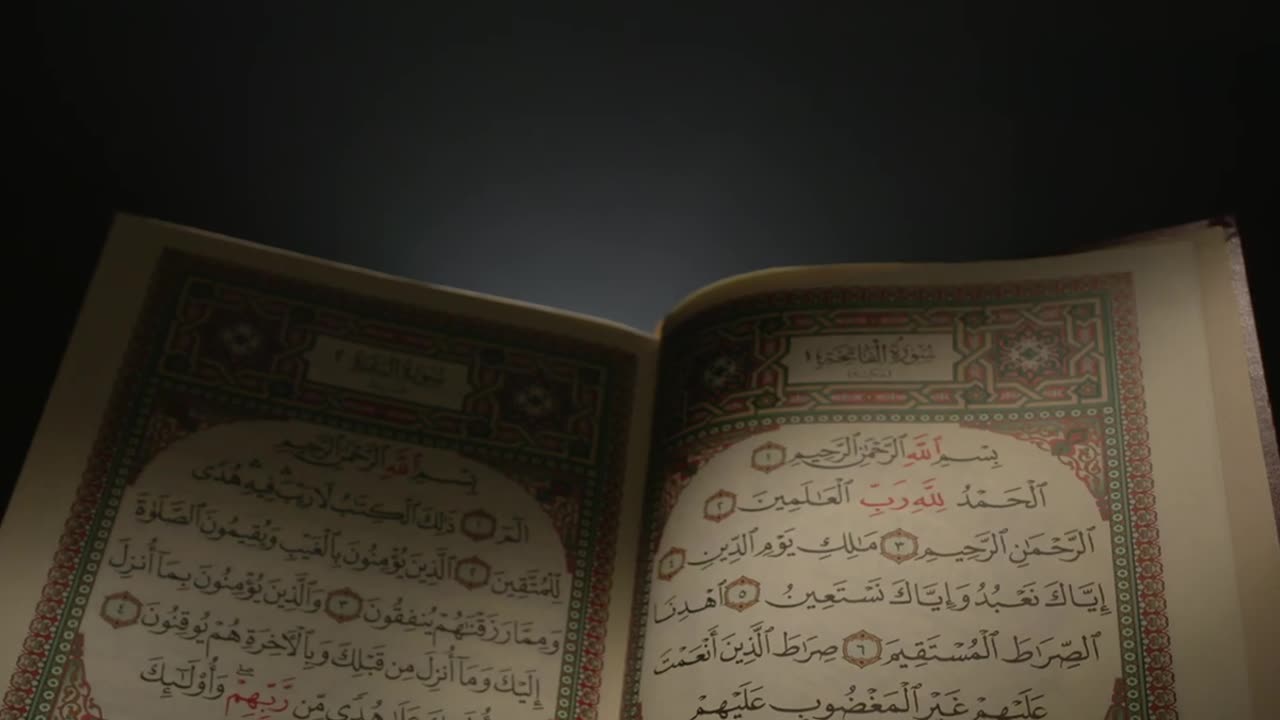 سُورَةُ الْفَاتِحَةِ ١
بِسْمِ ٱللَّهِ ٱلرَّحْمَٰنِ ٱلرَّحِيمِ ١
ٱلْحَمْدُ لِلَّهِ رَبِّ ٱلْعَٰلَمِينَ ٢
ٱلرَّحْمَٰنِ ٱلرَّحِيمِ ٣ مَٰلِكِ يَوْمِ ٱلدِّينِ ٤
إِيَّاكَ نَعْبُدُ وَإِيَّاكَ نَسْتَعِينُ ٥ ٱهْدِنَا
ٱلصِّرَٰطَ ٱلْمُسْتَقِيمَ ٦ صِرَٰطَ ٱلَّذِينَ أَنْعَمْتَ
عَلَيْهِمْ غَيْرِ ٱلْمَغْضُوبِ عَلَيْهِمْ
سُورَةُ الْبَقَرَةِ ٢
بِسْمِ ٱللَّهِ ٱلرَّحْمَٰنِ ٱلرَّحِيمِ
الٓمٓ ١ ذَٰلِكَ ٱلْكِتَٰبُ لَا رَيْبَ ۛ فِيهِ ۛ هُدًى
لِّلْمُتَّقِينَ ٢ ٱلَّذِينَ يُؤْمِنُونَ بِٱلْغَيْبِ وَيُقِيمُونَ ٱلصَّلَوٰةَ
وَمِمَّا رَزَقْنَٰهُمْ يُنفِقُونَ ٣ وَٱلَّذِينَ يُؤْمِنُونَ بِمَآ أُنزِلَ
إِلَيْكَ وَمَآ أُنزِلَ مِن قَبْلِكَ وَبِٱلْءَاخِرَةِ هُمْ يُوقِنُونَ ٤
هُدًى مِّن رَّبِّهِمْ ۖ وَأُو۟لَٰٓئِكَ